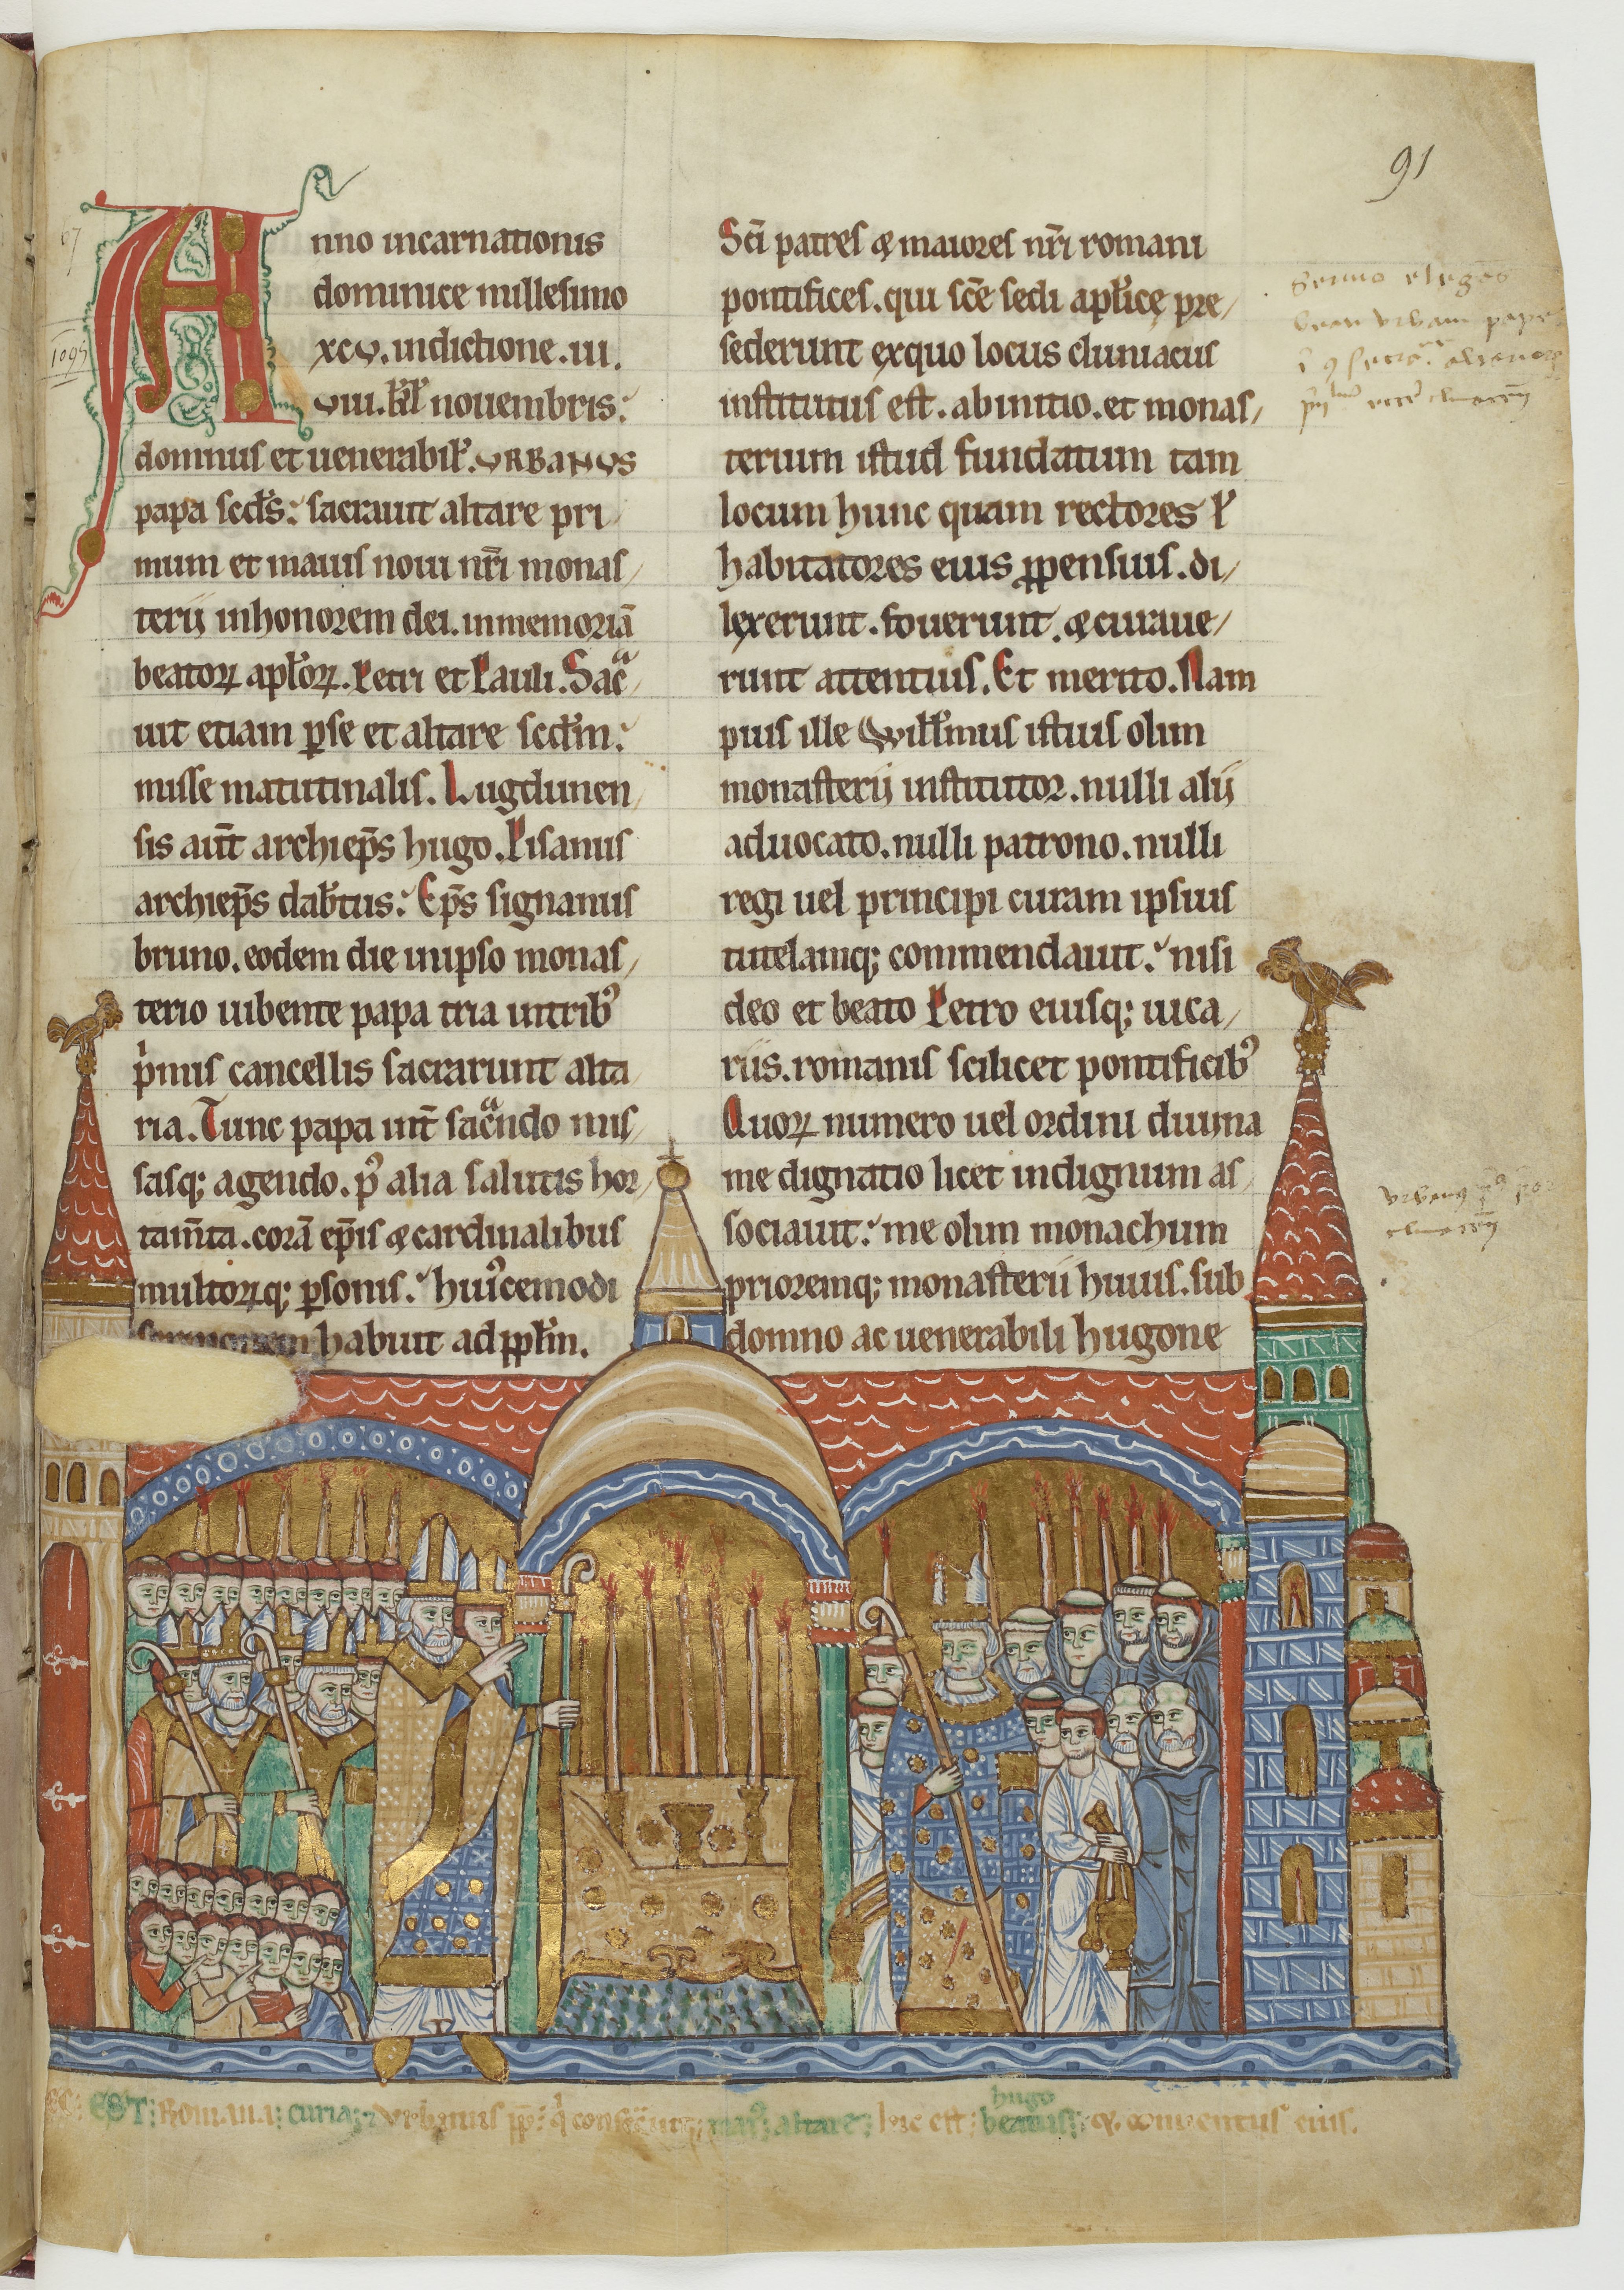 91
Anno incarnationis
dominice millesimo
xcv. indictione. iii.
viii. kl̄ nouembris:
domnus et uenerabil̄. VRBANVS
papa scds̄: sacrauit altare pri
mum et maius noui nr̄i monas
terij in honorem dei. in memoriā
beatoꝝ apl̄oꝝ. Petri et Pauli. Sacͣ
uit etiam ꝑ se et altare scd̄m:
misse matutinalis. Lugdunen
sis aut̄ archiep̄s hugo. Pisanus
archiep̄s dab̄tus: Ep̄s signanus
bruno. eodem die in ipso monas
terio iubente papa tria in trib᷒
p̍mis cancellis sacrarunt alta
ria. Tunc papa int̄ sacͣndo mis
sasq; agendo. p᷒ alia salutis hor
tam̄ta. corā ep̄is ⁊ cardinalibus
multoꝝq; ꝑsonis: hui᷒cemodi
sermonem habuit ad ppl̄m.
Sc̄i patres ⁊ maiores nr̄i romani
pontifices. qui sc̄e sedi apl̄icę pre
sederunt ex quo locus cluniacus
institutus est. ab initio. et monas
terium istud fundatum tam
locum hunc quam rectores l̄
habitatores eius ꝓpensius. di
lexerunt. fouerunt. ⁊ curaue
runt attentius. Et merito. Nam
pius ille Will̄mus istius olim
monasterij institutor. nulli alij
aduocato. nulli patrono. nulli
regi uel principi curam ipsius
tutelamq; commendauit: nisi
deo et beato Petro eiusq; uica
riis. romanis scilicet pontificib᷒
Quoꝝ numero uel ordini diuina
me dignatio licet indignum as
sociauit: me olim monachum
prioremq; monasterii huius. sub
domno ac uenerabili hugone
67
1095
EST: Romana: curia; ⁊ Vrbanus pp̄: q̍ consecͣuit; mai᷒; altare; hic est: beatus; hugo ⁊ conuentus eius.